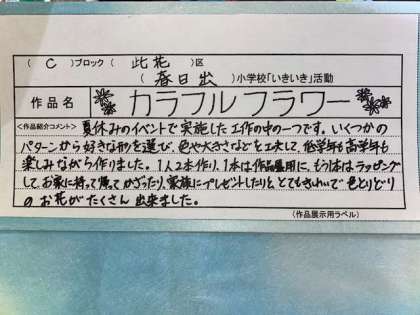 ( C )ブロック ( 此花 )区
( 春日出 )小学校「いきいき」活動
作品名 カラフルフラワー
<作品紹介コメント> 夏休みのイベントで実施した工作の中の一つです。いくつかの
パターンから好きな形を選び、色や大きさなどを工夫して、低学年も高学年も
楽しみながら作りました。1人2本作り、1本は作品展用に、もう1本はラッピング
して、お家に持って帰ってかざったり、家族にプレゼントしたりと、とてもきれいで色とりどり
のお花がたくさん出来ました。
(作品展示用ラベル)